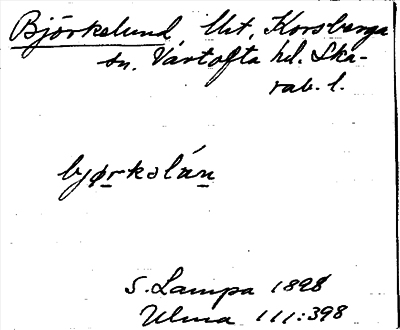 Björkelund, Uht, Korsberga
sn. Vartofta hd. Ska-
rab. l.
bjørkəlún
S. Lampa 1898
Ulma 111:398